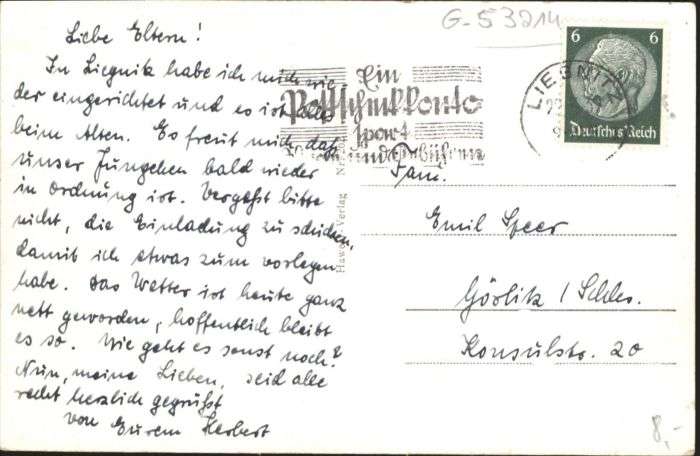 G-53214
Liebe Eltern!
In Liegnitz habe ich mich wie
der eingerichtet und es ist alles
beim Alten. Es freut mich, daß
unser Jungchen bald wieder
in Ordnung ist. Vergeßt bitte
nicht, die Einladung zu schicken,
damit ich etwas zum vorlegen
habe. Das Wetter ist heute ganz
nett geworden, hoffentlich bleibt
es so. Wie geht es sonst noch?
Nun, meine Lieben, seid alle
recht herzlich gegrüßt
von Eurem Herbert
Ein
Postscheckkonto
spart
und Gebühren
LIEGNITZ
6 6
Deutsches Reich
Verlag
Fam.
Emil Speer
Görlitz / Schles.
Konsulstr. 20
8,-